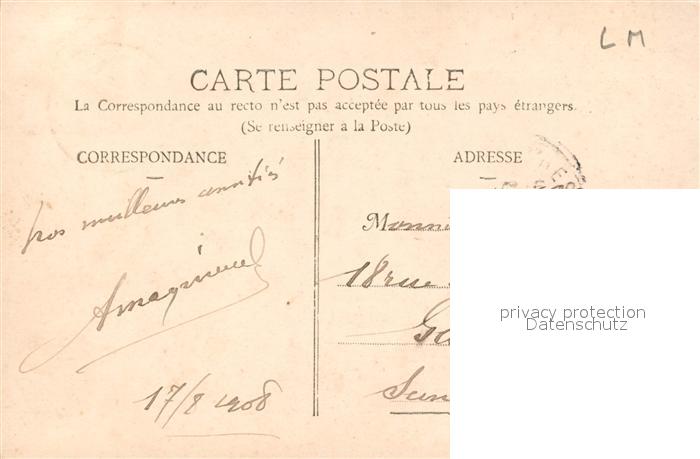 LM
CARTE POSTALE
La Correspondance au recto n'est pas acceptée par tous les pays étrangers.
(Se renseigner a la Poste)
CORRESPONDANCE
nos meilleures amitiés
17/8 1908
ADRESSE
18 rue
privacy protection
Datenschutz